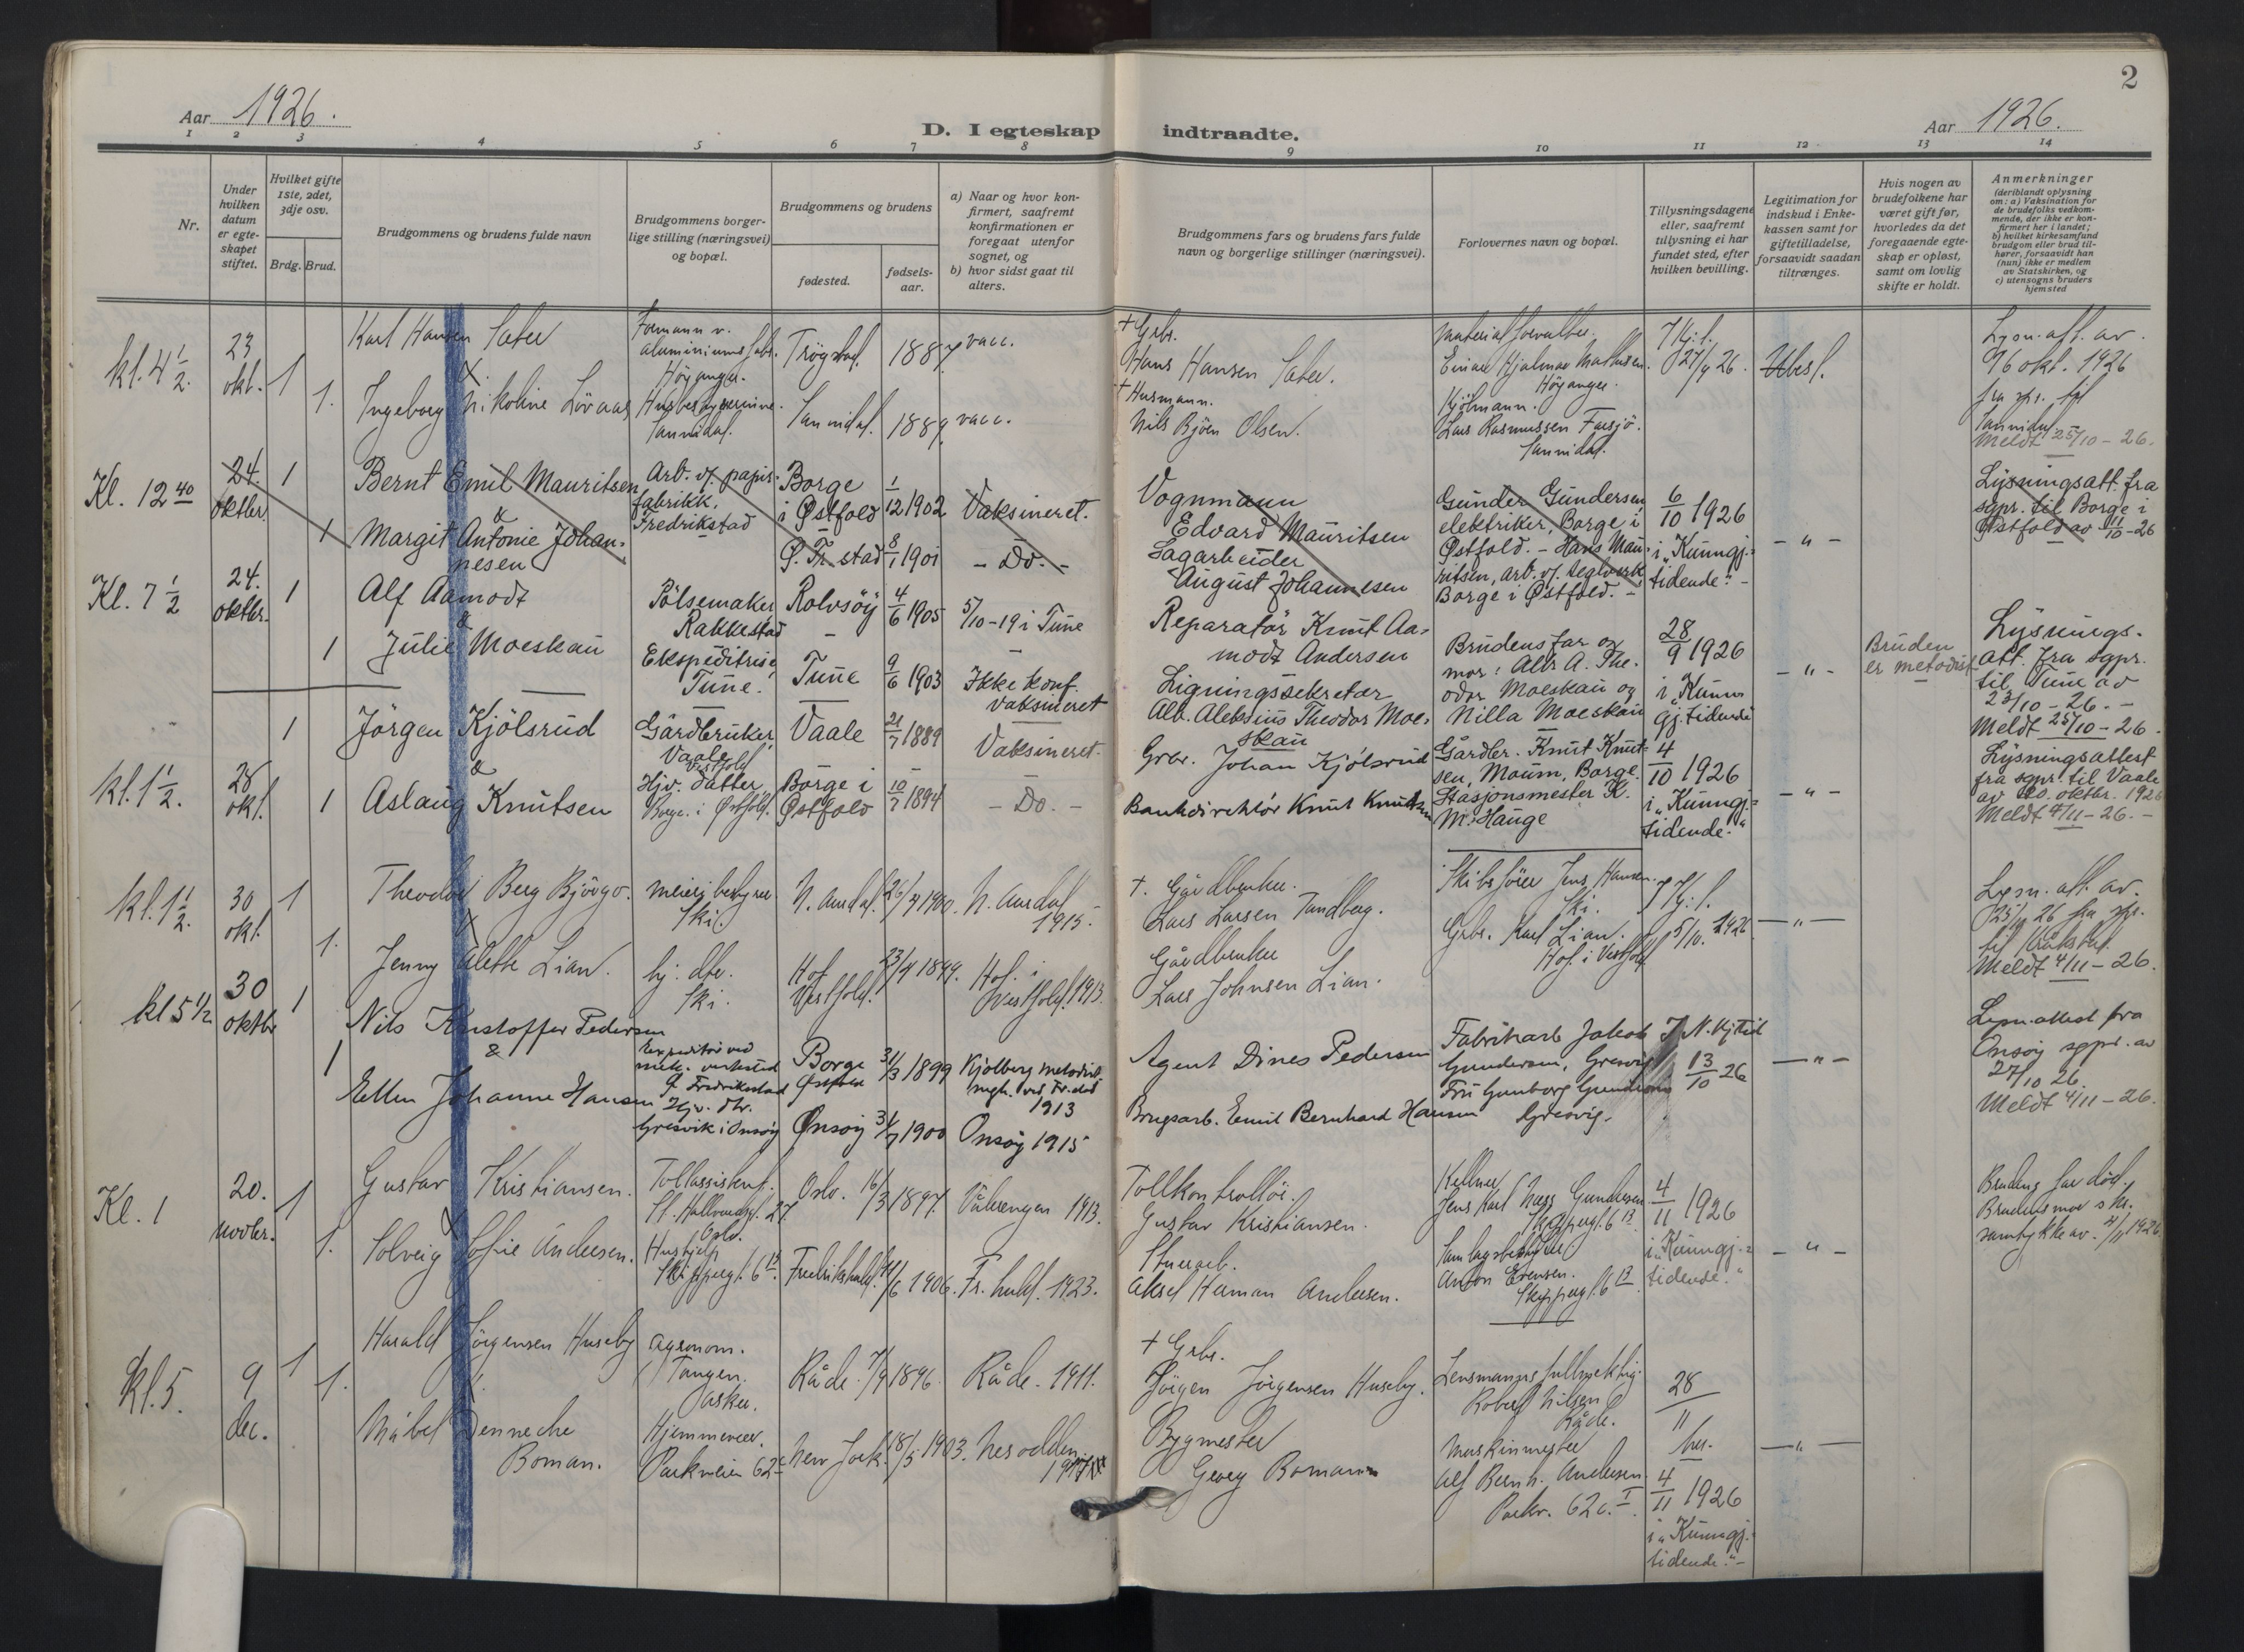 2
Aar 1926.
D. I egteskap indtraadte.
Aar 1926.
1 2 3 4 5 6 7 8 9 10 11 12 13 14
Nr.
Under hvilken datum er egte-skapet stiftet.
Hvilket gifte 1ste, 2det, 3dje osv.
Brdg. Brud.
Brudgommens og brudens fulde navn
Brudgommens borger-lige stilling (næringsvei) og bopæl.
Brudgommens og brudens
fødested.
fødsels-aar.
a) Naar og hvor kon-firmert, saafremt konfirmationen er foregaat utenfor sognet, og
b) hvor sidst gaat til alters.
Brudgommens fars og brudens fars fulde navn og borgerlige stillinger (næringsvei).
Forlovernes navn og bopæl.
Tillysningsdagene eller, saafremt tillysning ei har fundet sted, efter hvilken bevilling.
Legitimation for indskud i Enke-kassen samt for giftetilladelse, forsaavidt saadan tiltrænges.
Hvis nogen av brudefolkene har været gift før, hvorledes da det foregaaende egte-skap er opløst, samt om lovlig skifte er holdt.
Anmerkninger
(deriblandt oplysning om: a) Vaksination for de brudefolks vedkom-mende, der ikke er kon-firmert her i landet; b) hvilket kirkesamfund brudgom eller brud til-hører, forsaavidt han (hun) ikke er medlem av Statskirken, og c) utensogns bruders hjemsted
kl. 4 1/2.
23 okt.
1
1.
Karl Hansen Sæter
&
Ingeborg Nikoline Lövaas
Formann v. aluminiumsfabr. Höyanger.
Husbestyrerinne. Sannidal.
Trögstad.
1887.
vacc.
Sannidal.
1889.
vacc.
+ Grbr.
Hans Hansen Sæter.
+ Husmann.
Nils Bjöen Olsen.
Materialforvalter.
Einar Hjalmar Mathisen.
Höyanger.
Kjölmann.
Lars Rasmussen Farsjö.
Sannidal.
27/9 26.
Ubesl.
Lysn.att. av
16 okt. 1926
fra spr. til
Sannidal
Meldt 25/10 - 26.
Kl. 12 40
24. oktbr.
1
1
Bernt Emil Mauritsen
&
Margit Antonie Johan-
nesen
Arb. v. papir-
fabrikk.
Fredrikstad
Borge
i Østfold
1/12 1902
Vaksineret.
Ø. Fr. stad
8/1 1901
- Do. -
Vognmann
Edvard Mauritsen
Sagarbeider
August Johannesen
Gunder Gundersen
elektriker, Borge i
Østfold. - Hans Mau-
ritsen, arb. v. teglverk,
Borge i Østfold. -
6/10 1926
i „Kunngj.-
tidende". -
- " -
Lysningsatt. fra
sgpr. til Borge i
Østfold av 11/10 - 26
Kl. 7 1/2
24. oktbr.
1
1
Alf Aamodt
&
Julie Moeskau
Pölsemaker
Rakkestad
Ekspeditrise
Tune.
Rolvsöy
4/6 1905
5/10 - 19 i Tune
Tune
9/6 1903
Ikke konf.
Vaksineret
Reparatör Knut Aa-
modt Andersen
Ligningssekretær
Alb. Aleksius Theodor Moe-
skau
Brudens far og
mor: Alb. A. The-
odor Moeskau og
Nilla Moeskau
28/9 1926
i „Kunn
gj. tidende
- " -
Bruden
er metodist
Lysnings-
att. fra sgpr.
til Tune av
23/10 - 26. -
Meldt 25/10 - 26.
kl. 1 1/2.
28 okt.
1
1
Jörgen Kjölsrud
&
Aslaug Knutsen
Gårdbruker
Vaale
Vestfold
Hjv. datter
Borge i Østfold.
Vaale
21/7 1889
Vaksineret.
Borge i
Østfold
10/7 1894
- Do. -
Grbr. Johan Kjölsrud
Bankdirektör Knut Knutsen
Gårdbr. Knut Knut-
sen, Moum, Borge.
Stasjonsmester K.
M. Hauge
4/10 1926
i „Kunngj.-
tidende."
- " -
Lysningsattest
fra sgpr. til Vaale
av 20. oktbr. 1926
Meldt 4/11 - 26. -
kl. 1 1/2.
30 okt.
1
1.
Theodor Berg Bjövgo.
&
Jenny Alette Lian.
Meieribestyrer
Ski.
hj. dtr.
Ski.
N. Aurdal.
26/7 1900.
N. Aurdal
1915.
Hof
Vestfold.
1899.
Hof. i
Vestfold. 1913.
+. Gårdbruker.
Lars Larsen Tandberg.
Gårdbruker
Lars Johnsen Lian.
Skibsförer Jens Hansen.
Ski.
Grbr. Karl Lian.
Hof. i Vestfold
5/10. 1926
- " -
Lysn. att. av
25/10 26 fra spr.
til Kråkstad.
Meldt 4/11 - 26.
kl 5 1/2
30 oktbr
1
1
Nils Kristoffer Pedersen
&
Ellen Johanne Hansen
Expeditör ved
mek. verksted
Fredrikstad
Hjv. dtr.
Gresvik i Onsøy
Borge
Østfold
31/3 1899
Kjølberg metodist
mgh. ved Fr.stad
1913
Ønsøy
1900
Onsøy 1915
Agent Dines Pedersen
Brugsarb. Emil Bernhard Hansen
Fabrikarb Jakob
Gundersen, Gresvig
Fru Gunborg Gundersen
Gresvig.
13/10 26
- " -
Lysn.attest fra
Onsøy sgpr. av
27/10 26.
Meldt 4/11 - 26.
Kl. 1
20. novbr.
1
1.
Gustav Kristiansen.
&
Solveig Sofie Andersen.
Tollassistent.
St. Hallvardsgt. 27.
Oslo.
Hushjelp
Skippergt. 6 13.
Oslo.
16/3 1897.
Vålerengen 1913.
Fredrikshald.
1906.
Fr. hald. 1923.
Tollkontrollör.
Gustav Kristiansen.
Stuerarb.
Aksel Herman Andersen.
Kellner
Jens Karl Næss Gundersen
Skippergt. 6 13
Samlagsbestyrer
Anton Evensen.
Skippergt. 6 13
4/11 1926
i „Kunngj.-
tidende."
- " -
Brudens far död.
Brudens mor skr.
samtykke av. 4/11 1926.
kl. 5.
9 dec.
1
1.
Harald Jörgensen Huseby
&
Mabel Denneche
Boman.
Agronom.
Tangen.
Asker.
Hjemmevær.
Parkveien 62c
Råde.
7/9 1896
Råde. 1911.
New York.
18/5 1903.
Nesodden
+ Grbr.
Jörgen Jörgensen Huseby.
Bygmester
Georg Bomann
Lensmannsfullmektig
Robert Nilsen
Råde.
Maskinmester
Alf Bernh. Andersen
Parkv. 62 c. I
28/11
her.
4/11 1926
i „Kunngj.
tidende." -
- " -